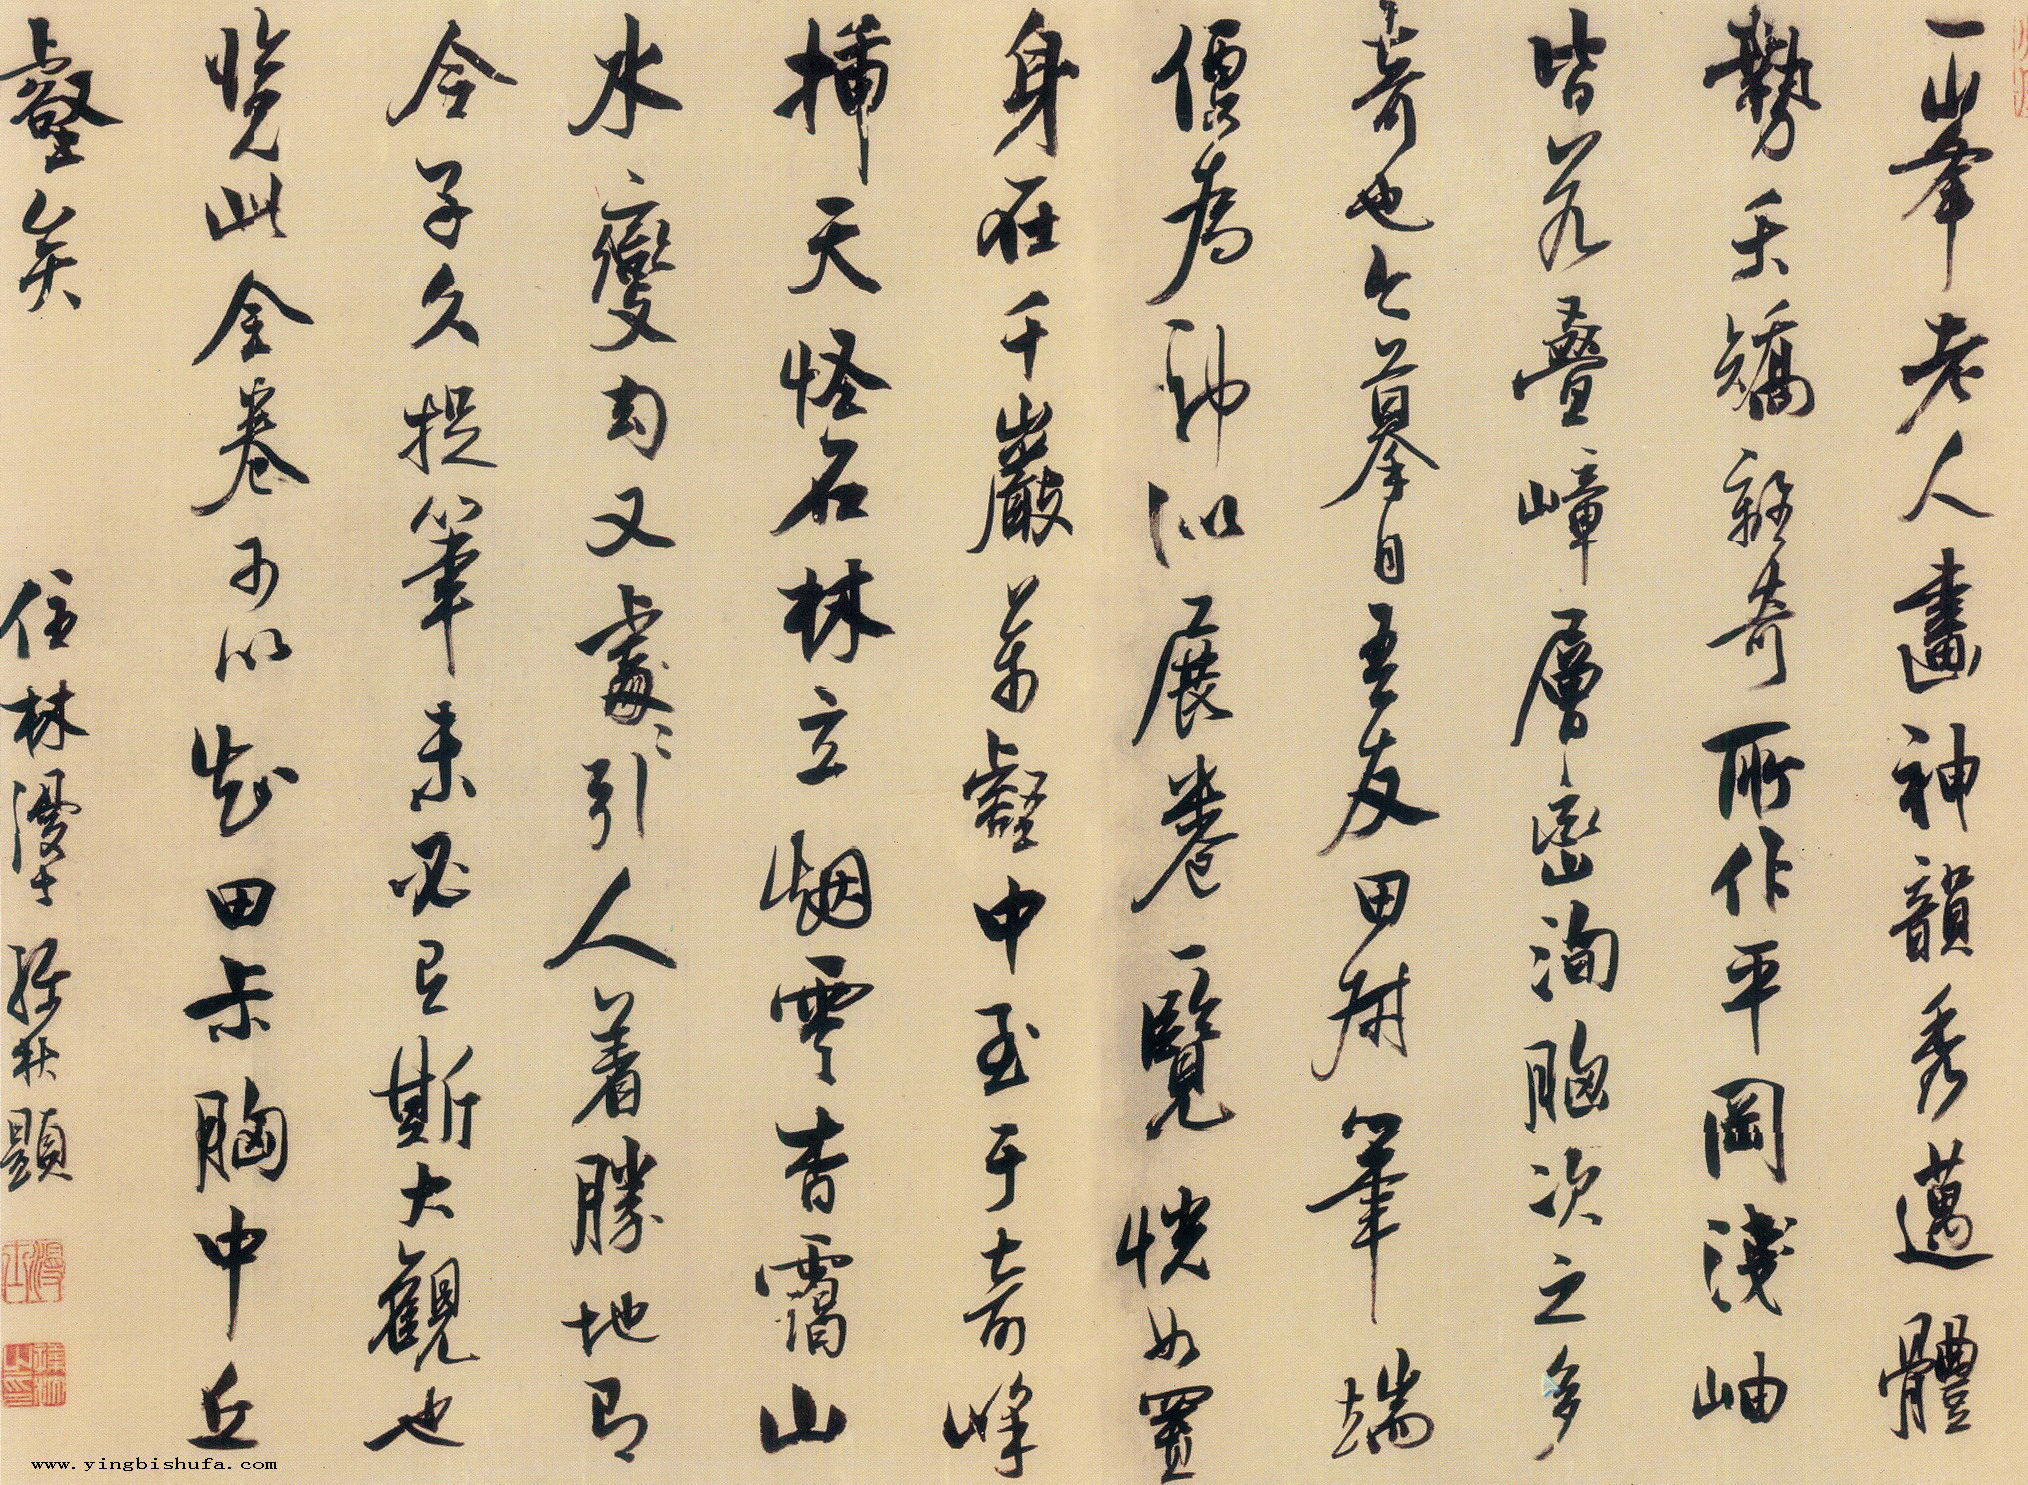 一峯老人畫神韻秀邁體
勢夭矯離奇所作平岡淺岫
皆若疊嶂層巒洵胸次之多
奇也今摹自吾友田叔筆端
便為神似展卷一覽恍如置
身在千巖萬壑中至于奇峰
插天怪石林立烟雲杳靄山
水變幻又處〻引人着勝地即
令子久提筆未必有斯大觀也
覽此全卷可以知田叔胸中丘
壑矣
住林漫士孫杕題
漫士
www.yingbishufa.com